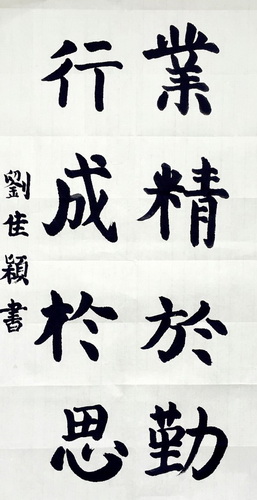 業精於勤
行成於思
劉佳穎書